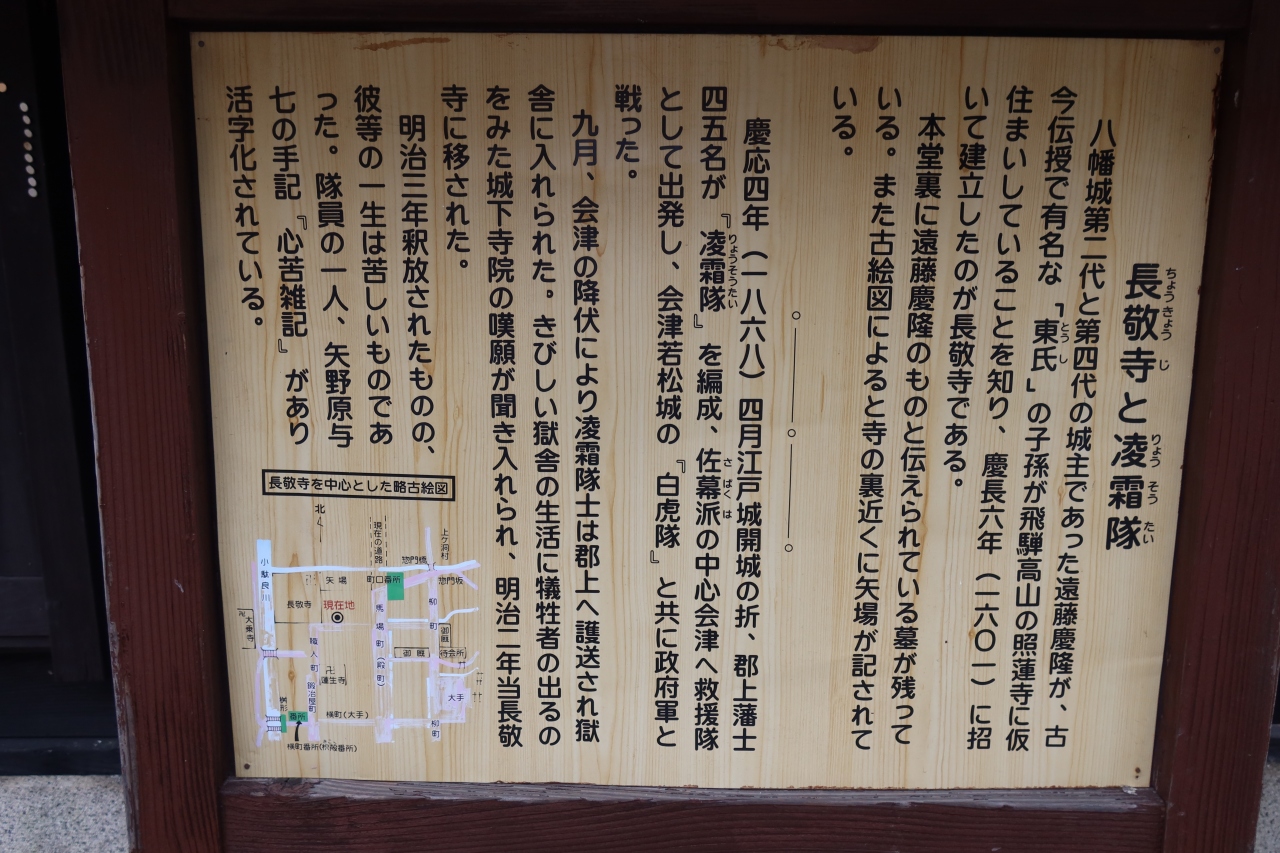 長敬寺と凌霜隊
ちょうきょう じ りょう そう たい
八幡城第二代と第四代の城主であった遠藤慶隆が、古
今伝授で有名な「東氏」の子孫が飛騨高山の照蓮寺に仮
とう し
住まいしていることを知り、慶長六年（一六〇一）に招
いて建立したのが長敬寺である。
本堂裏に遠藤慶隆のものと伝えられている墓が残って
いる。また古絵図によると寺の裏近くに矢場が記されて
いる。
慶応四年（一八六八）四月江戸城開城の折、郡上藩士
四五名が『凌霜隊』を編成、佐幕派の中心会津へ救援隊
りょうそうたい さ ばく は
として出発し、会津若松城の『白虎隊』と共に政府軍と
戦った。
九月、会津の降伏により凌霜隊士は郡上へ護送され獄
舎に入れられた。きびしい獄舎の生活に犠牲者の出るの
をみた城下寺院の嘆願が聞き入れられ、明治二年当長敬
寺に移された。
明治三年釈放されたものの、
彼等の一生は苦しいものであ
った。隊員の一人、矢野原与
七の手記『心苦雑記』があり
活字化されている。
長敬寺を中心とした略古絵図
北
現在の道路
上ケ洞村
惣門橋
惣門坂
小駄良川
矢場
町口番所
長敬寺
現在地
卍大乗寺
馬場町（殿町）
柳町
御厩
御厩
待会所
職人町
鍛冶屋町
卍蓮生寺
大手
桝形
番所
横町(大手)
柳町
横町番所(枡形番所)